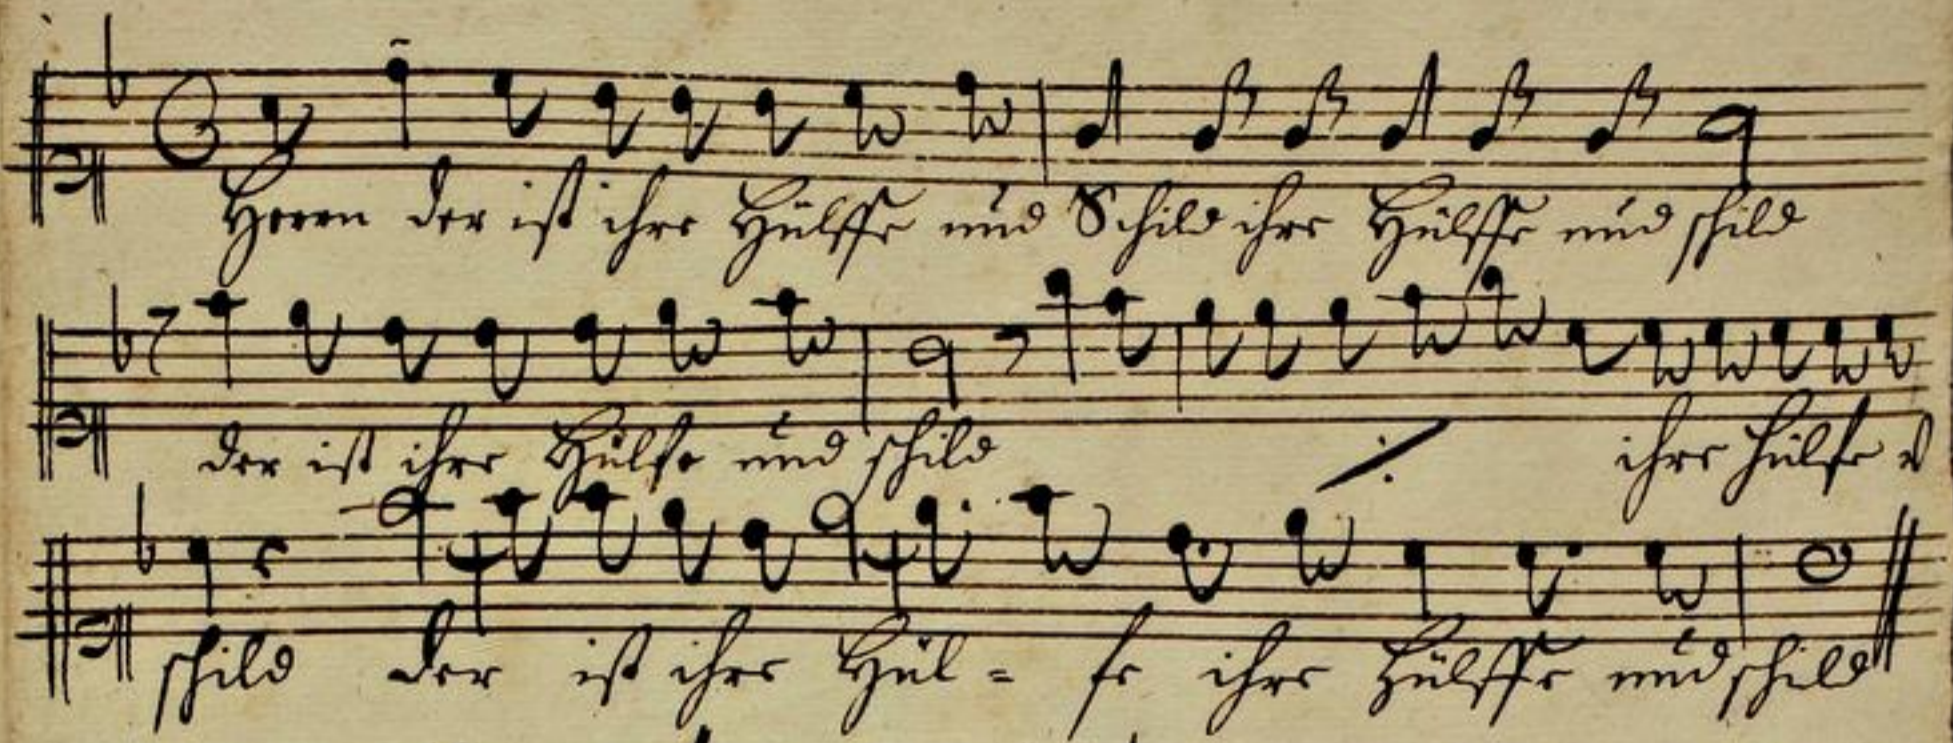 Herrn der ist ihre Hülffe und Schild ihre Hülffe und schild
der ist ihre Hülfe und schild ./. ihre hülfe v
schild der ist ihre Hül = fe ihre Hülffe und schild